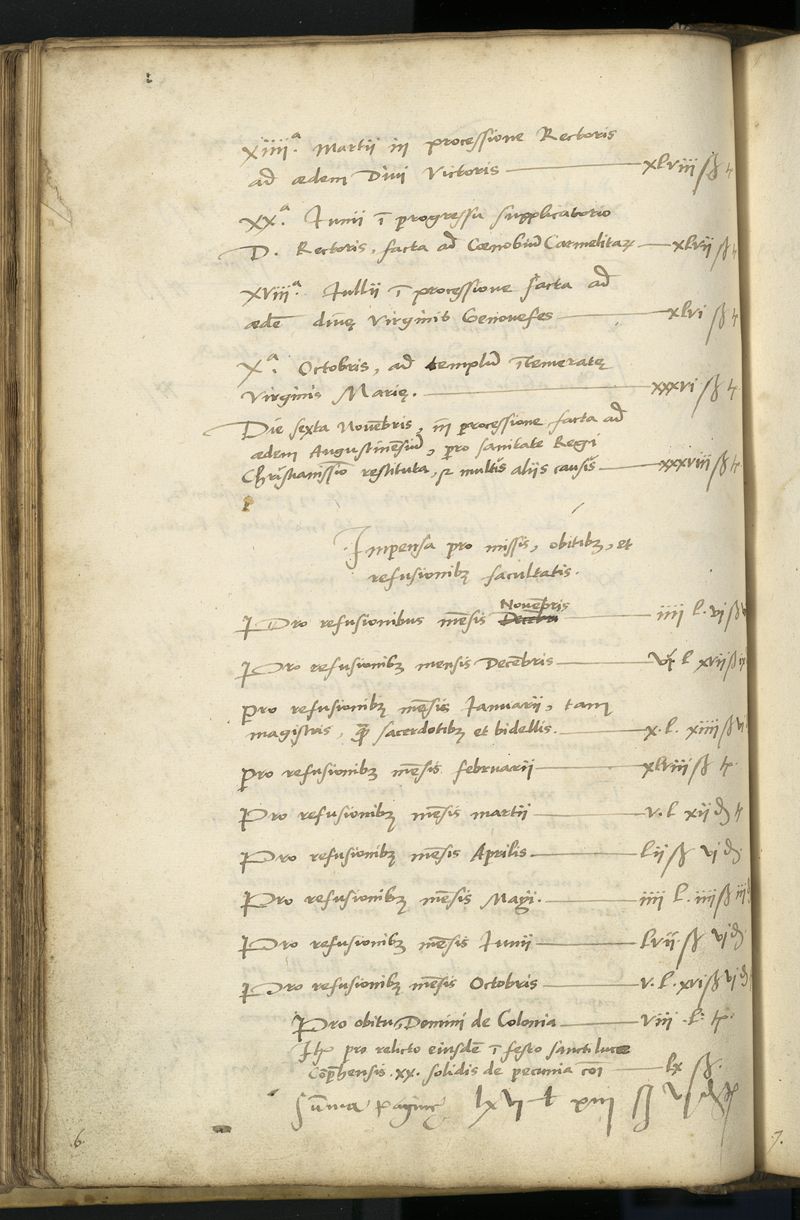 xiiii.ª Martii in processione Rectoris
ad ædem Divi Victoris — xlviii ß t
xx.ª Iunii ī progressu supplicatorio
D. Rectoris, facta ad Cœnobiū Carmelitaꝝ — xlvii ß t
xviii.ª Iullii ī processione facta ad
ædē divę Virginis Genovefes — xlvi ß t
x.ª Octobris, ad templū ītemeratę
Virginis Marię. — xxxvi ß t
Die sexta Novēbris, in processione facta ad
ædem Augustinēsiū, pro sanitate Regi
Christianissīo restituta, & multis aliis causis — xxxviii ß t
Impensa pro missis, obitibꝫ, et
refusionibꝫ facultatis.
Pro refusionibus mēsis Novēbris — iiii l. vi ß
Pro refusionibꝫ mensis Decēbris — l xvii ß
pro refusionibꝫ mēsis Ianuarii, tam
magistris, quā sacerdotibꝫ et bidellis. — x. l. xiiii ß vi
pro refusionibꝫ mēsis februarii — xlviii ß t.
Pro refusionibꝫ mēsis martii — v. l xii đ t
Pro refusionibꝫ mēsis Aprilis — lii ß vi đ
Pro refusionibꝫ mēsis Magi. — iiii l. iiii ß
Pro refusionibꝫ mēsis Iunii — lvii ß vi đ
Pro refusionibꝫ mēsis Octobris — v. l. xvi ß vi đ
Pro obitu Domini de Colonia — viii l. t.
Itē pro relicto eiusdē ī festo sancti luce
Cōprehensis .xx. solidis de pecunia coī — lx ß.
Sūma paginę lxvi l xiii ß v đ
6
7.